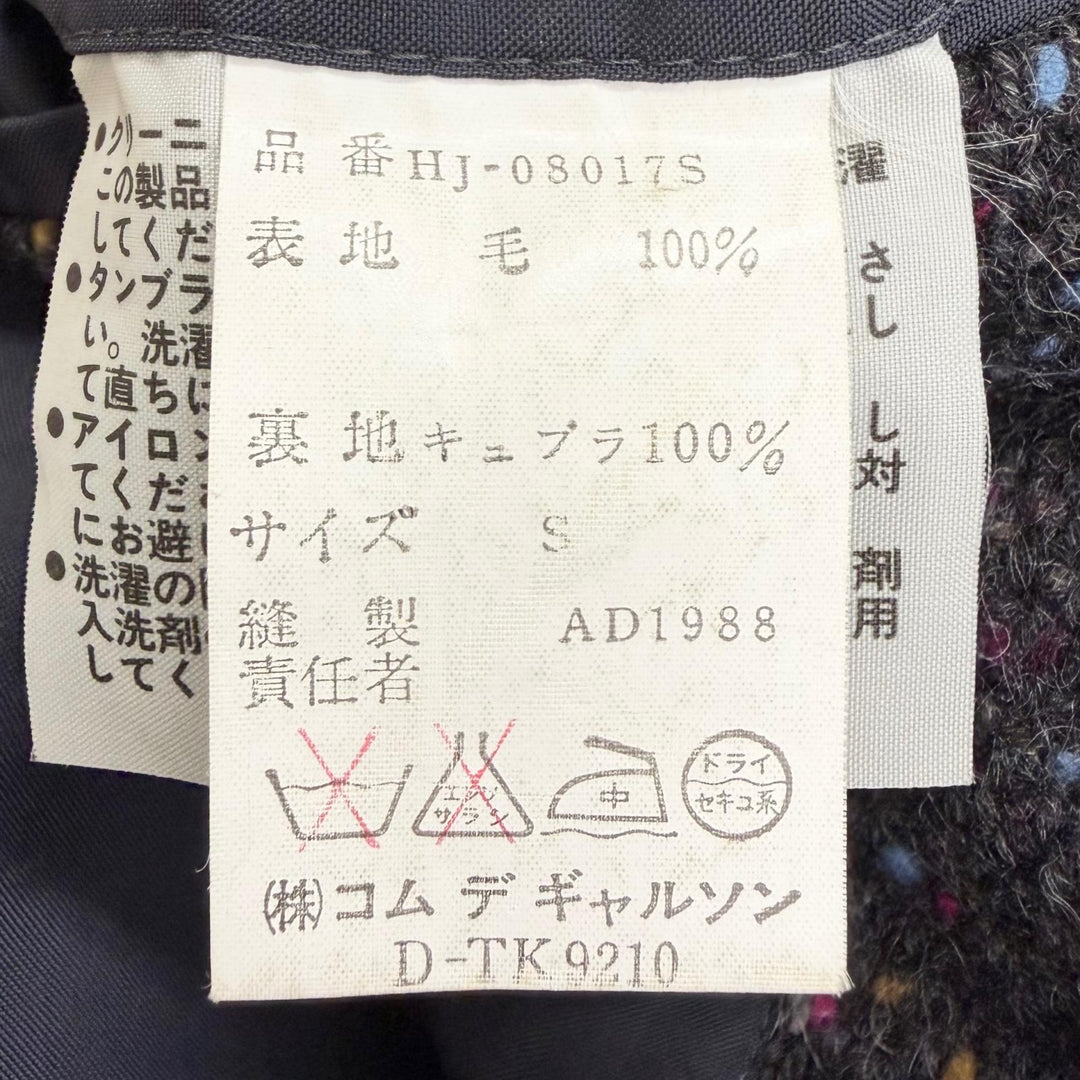 品番 HJ-08017S
表地 毛 100%
裏地 キュプラ 100%
サイズ S
縫製 AD1988
責任者
エンソ
サラシ
中
ドライ
セキユ系
(株)コム デ ギャルソン
D-TK9210
●クリーニ
この製品
してくだ
●タンブラ
い。洗濯
て直ちに
●アイロン
てくだ
にお避
●洗濯の
入洗剤
してく
濯
さ
し
し
対
剤
用